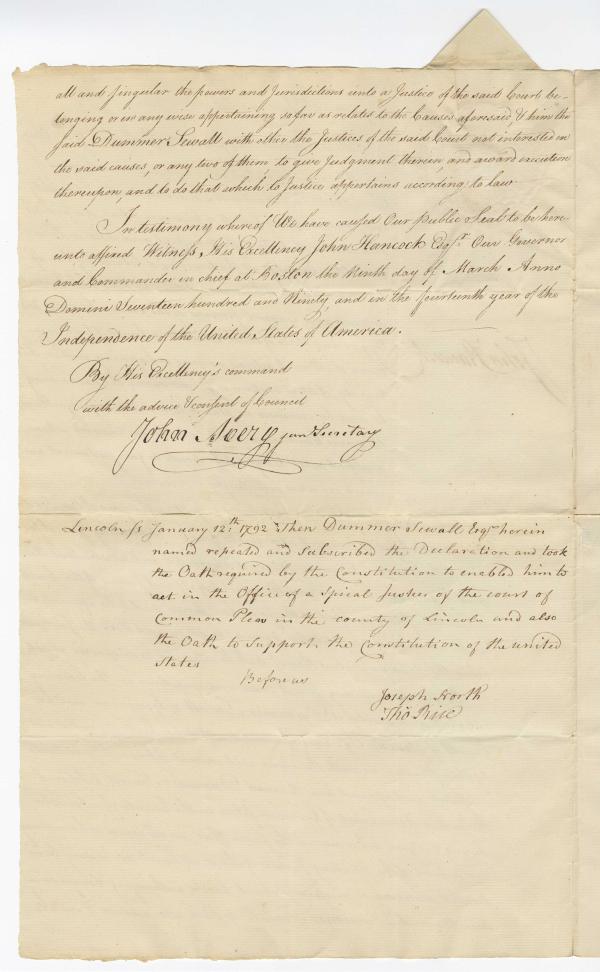 all and singular the powers and Jurisdictions unto a Justice of the said Court be-
longing or in any wise appertaining so far as relates to the Causes aforesaid, & him the
said Dummer Sewall with other the Justices of the said Court not interested in
the said causes, or any two of them, to give Judgment therein, and award execution
thereupon, and to do that which to Justice appertains according to law.
In testimony whereof We have caused Our Public Seal to be here-
unto affixed Witness, His Excellency John Hancock Esqr. Our Governor
and Commander in chief at Boston the Ninth day of March Anno
Domini Seventeen hundred and Ninety, and in the fourteenth year of the
Independence of the United States of America.
By His Excellency's command
with the advice & consent of Council
John Avery jun Secretary
Lincoln ss January 12th. 1792 Then Dummer Sewall Esqr herein
named repeated and subscribed the Declaration and took
the Oath required by the Constitution to enabled him to
act in the Office of a Spicial Justice of the court of
Common Pleas in the county of Lincoln and also
the Oath to support the Constitution of the united
States
Before us
Joseph North
Tho Rice